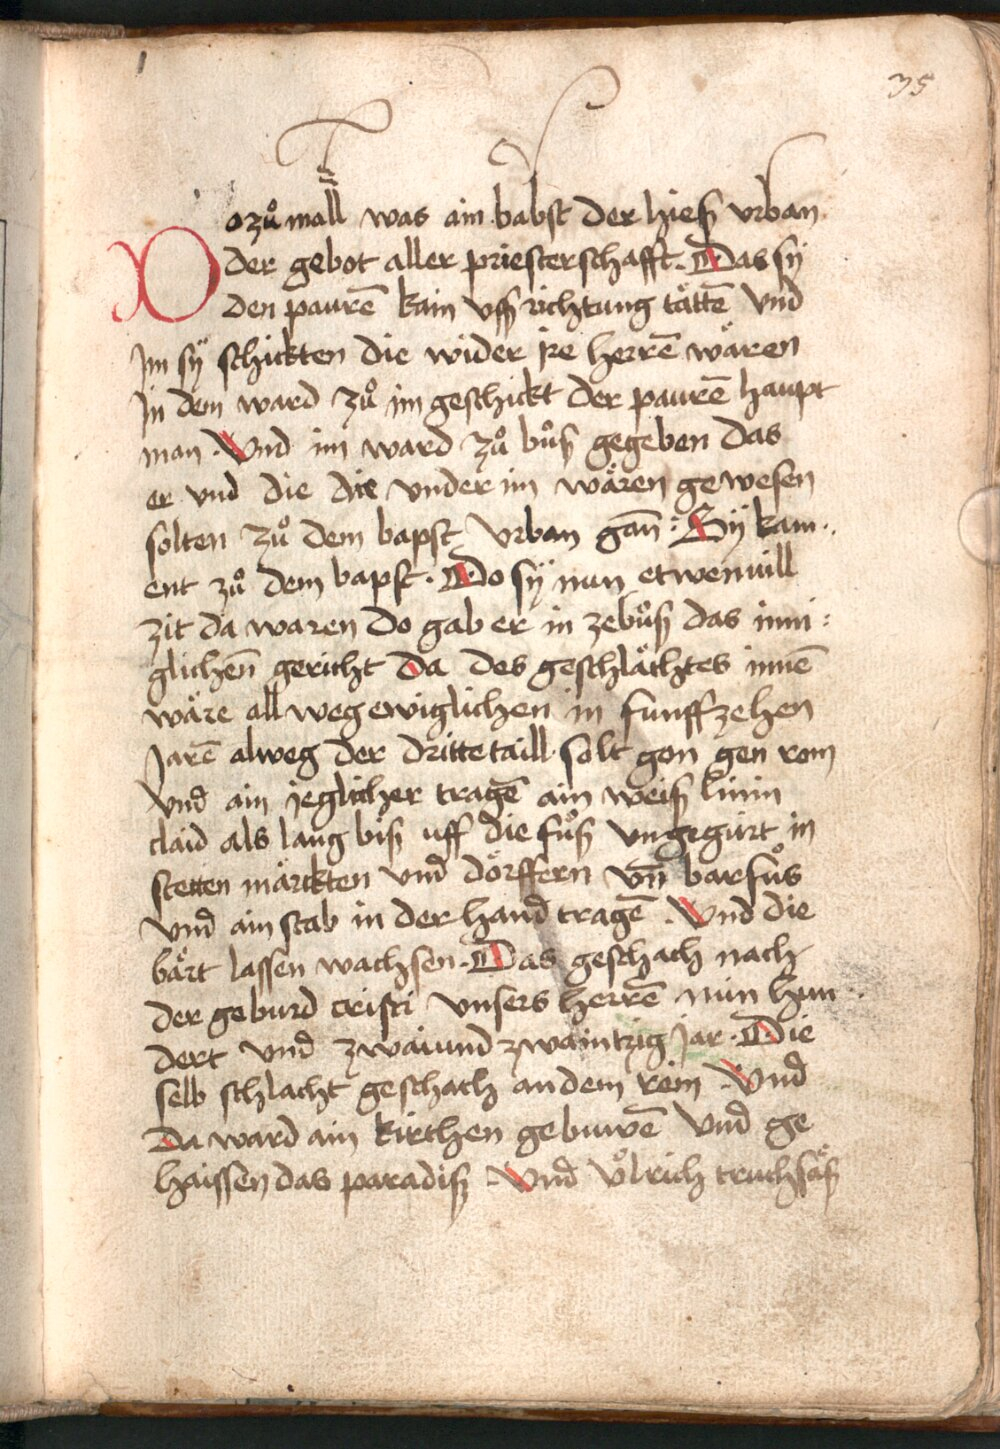 35
Dozuͦmall was ain babst der hiesß vrban
der gebot aller priesterschafft. Das sÿ
den paurē kain vsß richtung taͤttē vnd
Im sÿ schickten die wider ire herrē waͤren
In dem ward zuͦ im geschickt der paurē haupt
man . Vnd im ward zuͦ buͦsß gegeben das
er vnd die die vnder im waͤren gewesen
solten zuͦ dem bapst vrban gan̄ : Sÿ kam..
ent zuͦ dem bapst . Do sÿ nun etwenuill
zit da waren do gab er in zebuͦsß das inni :
glichen̄ gericht da des geschlaͤchtes innē
waͤre all weg ewiglichen in funffzehen
Jarē alweg der dritte taill solt gon gen rom
vnd ain jeglicher tragē ain weisß linin
claid als lang bisß uff die fuͦsß vngegürt in
stetten maͤrckten vnd doͤrffern vn̄ barfuͦs
vnd ain stab in der hand tragē . Vnd die
baͤrt lassen wachsen . Das geschach nach
der geburd cristi vnsers herrē nün hun .
dert vnd zwaiund zwaintzig jar . Die
selb schlacht geschach an dem rein . Vnd
Da ward ain kirchen gebuwē vnd ge
haissen das paradisß . Vnd voͤlrich truchsaͤsß